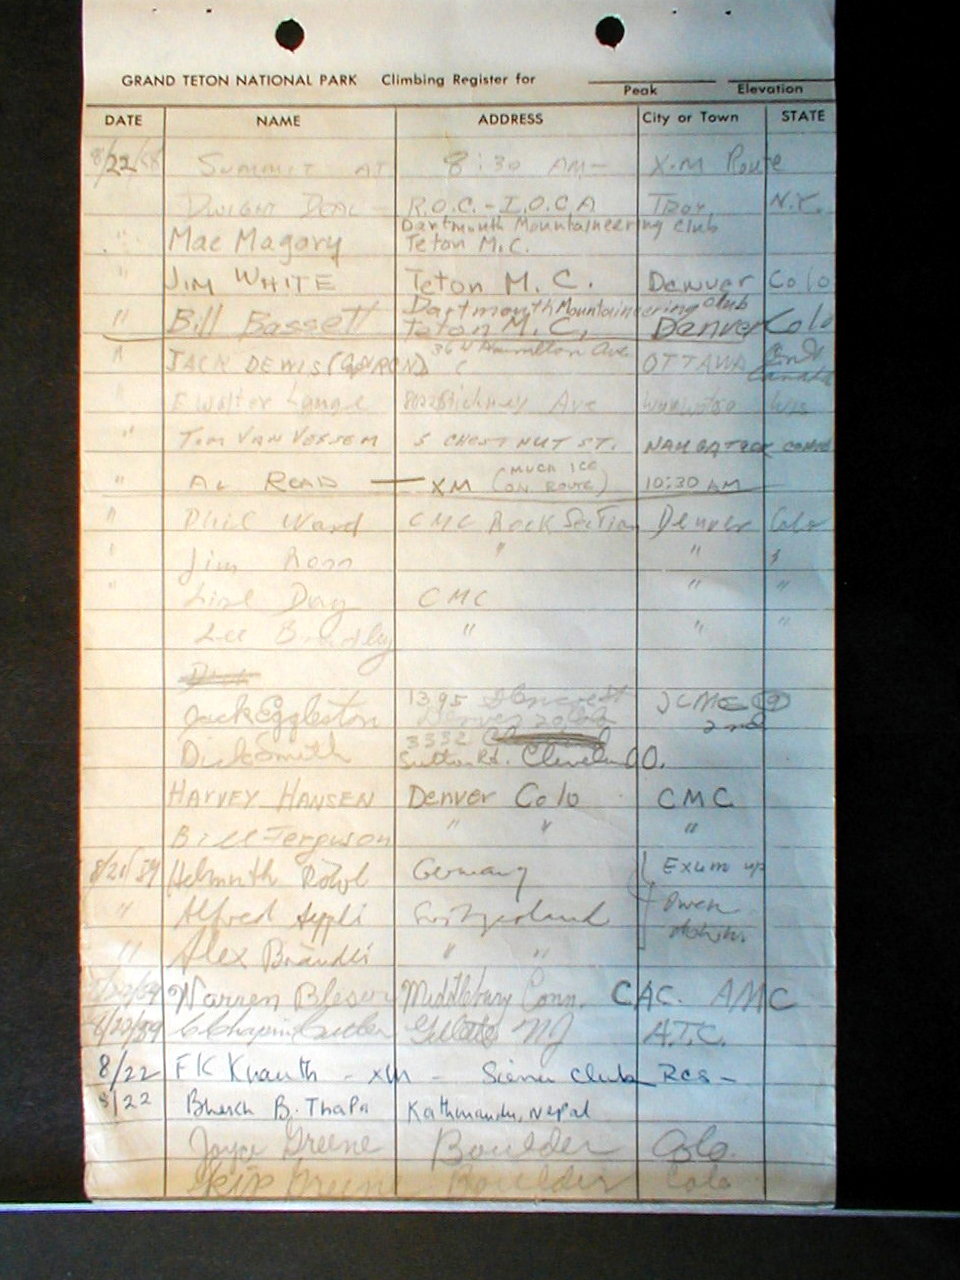 GRAND TETON NATIONAL PARK Climbing Register for
Peak Elevation
DATE NAME ADDRESS City or Town STATE
8/22 SUMMIT AT 8:30 AM- X-M Route
DWIGHT DEAL R.O.C.-I.O.C.A Troy N.Y.
Dartmouth Mountaineering club
" Mac Magary Teton M.C.
" JIM WHITE Teton M.C. Denver Colo
Dartmouth Mountaineering club
" Bill Bassett Teton M.C, Denver Colo
Hamilton Ave
" JACK DEWIS OTTAWA Canada
" E Walter Ave Wis
" TOM VAN 5 CHESTNUT ST. NAUGATUCK CONN
(MUCH ICE
" AL READ — XM ON ROUTE) 10:30 AM
" Phil Ward CMC Rock Section Denver Colo
" Jim " " "
" Day CMC " "
Lee " " "
1395
Jack Eggleston Denver 20 2nd
3332
Dick Smith Rd. Cleveland O.
HARVEY HANSEN Denver Colo CMC
Bill Ferguson " " "
8/21/59 Helmuth Germany Exum up
" Alfred Switzerland Owen
" Alex Brändli " "
Warren Middlebury Conn. CAC. AMC
8/22/59 NJ A.T.C.
8/22 FK Knauth - XM - Sierra Club RCS -
8/22 B. Thapa Kathmandu, Nepal
Joyce Greene Boulder Colo.
Skip Greene Boulder Colo